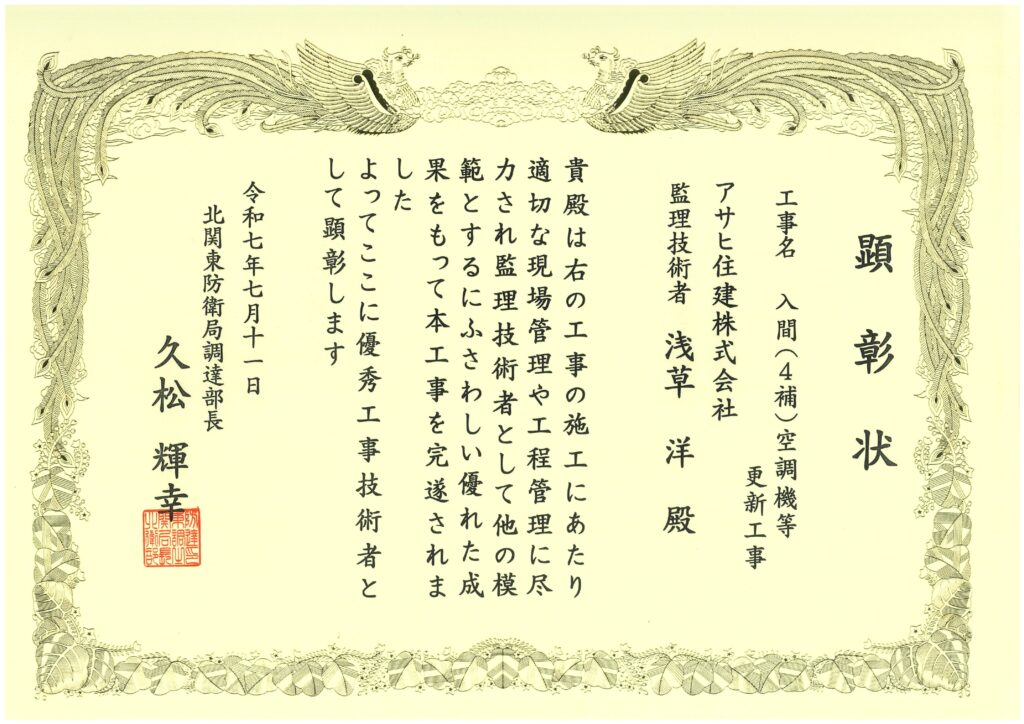 顕彰状
工事名　入間（４補）空調機等
更新工事
アサヒ住建株式会社
監理技術者　浅草　洋　殿
貴殿は右の工事の施工にあたり
適切な現場管理や工程管理に尽
力され監理技術者として他の模
範とするにふさわしい優れた成
果をもって本工事を完遂されま
した
よってここに優秀工事技術者と
して顕彰します
令和七年七月十一日
北関東防衛局調達部長
久松　輝幸